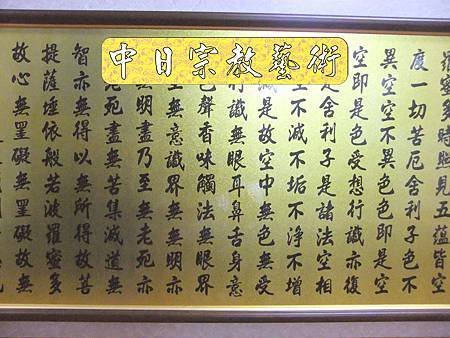 中日宗教藝術
羅蜜多時照見五蘊皆空
度一切苦厄舍利子色不
異空空不異色色即是空
空即是色受想行識亦復
是舍利子是諸法空相
生不滅不垢不淨不增
減是故空中無色無受
行識無眼耳鼻舌身意
色聲香味觸法無眼界
至無意識界無無明亦
無明盡乃至無老死亦
老死盡無苦集滅道無
智亦無得以無所得故菩
提薩埵依般若波羅蜜多
故心無罣礙無罣礙故無